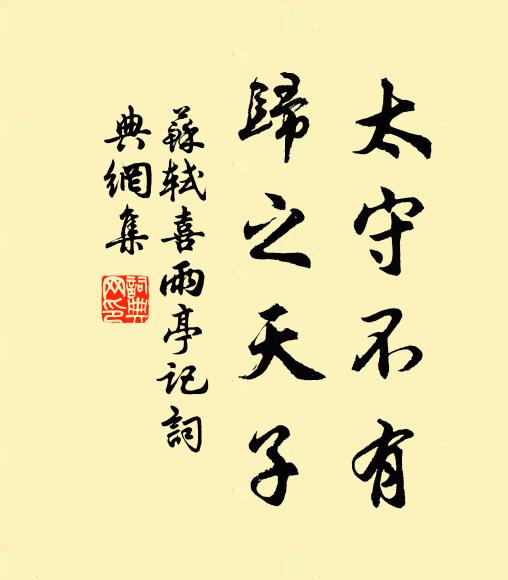 太守不有
歸之天子
蘇軾喜雨亭記詞
典網集
詞典
网印